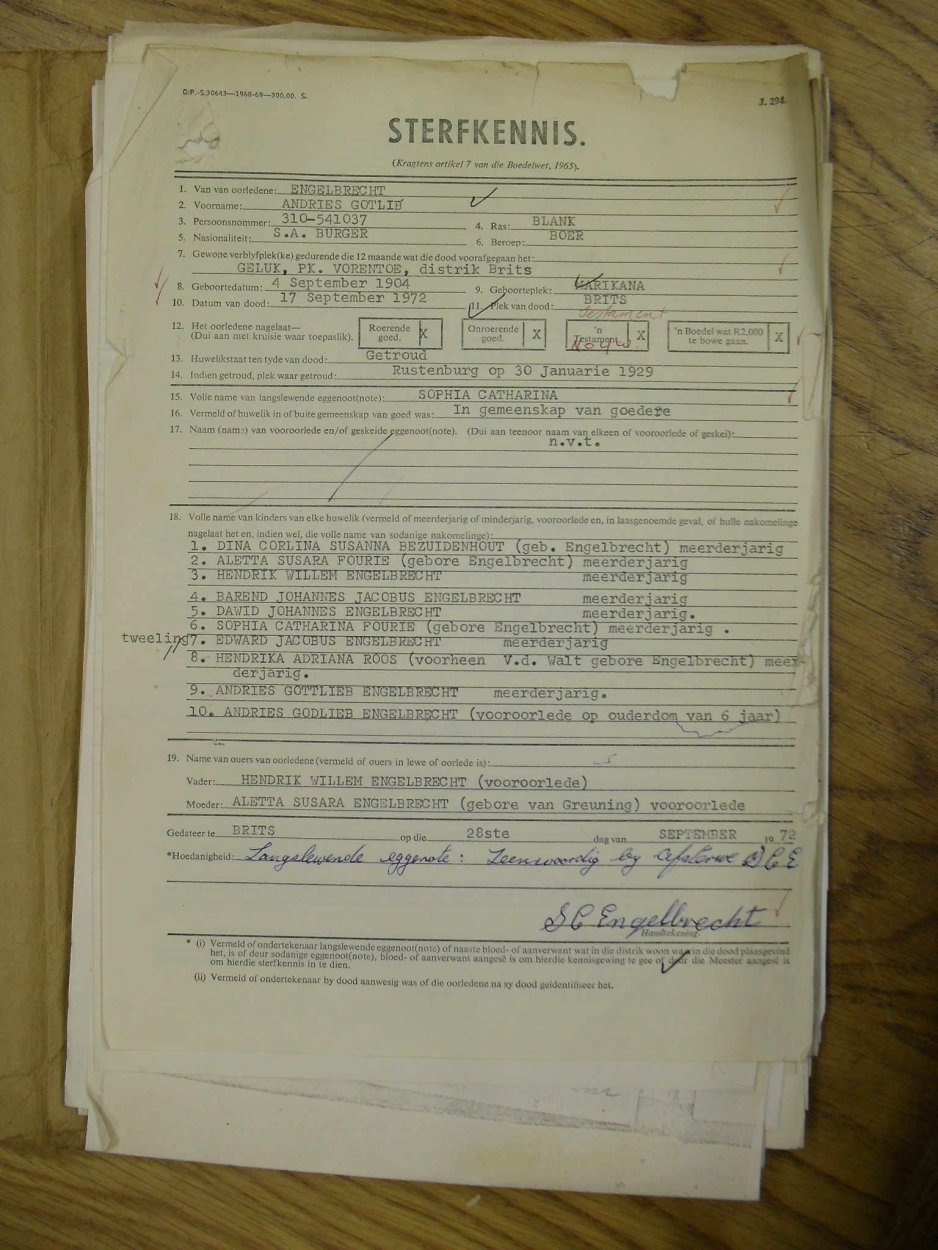 G.P.-S.30643—1968-69—300,00. S.
J. 294.
STERFKENNIS.
(Kragtens artikel 7 van die Boedelwet, 1965).
1. Van van oorledene: ENGELBRECHT
2. Voorname: ANDRIES GOTLIB
3. Persoonsnommer: 310-541037 4. Ras: BLANK
5. Nasionaliteit: S.A. BURGER 6. Beroep: BOER
7. Gewone verblyfplek(ke) gedurende die 12 maande wat die dood voorafgegaan het:
GELUK, PK. VORENTOE, distrik Brits
8. Geboortedatum: 4 September 1904 9. Geboorteplek: MARIKANA
10. Datum van dood: 17 September 1972 11. Plek van dood: BRITS
Testament
12. Het oorledene nagelaat— Roerende goed. X Onroerende goed. X 'n Testament X 'n Boedel wat R2,000 te bowe gaan. X
(Dui aan met kruisie waar toepaslik).
13. Huwelikstaat ten tyde van dood: Getroud
14. Indien getroud, plek waar getroud: Rustenburg op 30 Januarie 1929
15. Volle name van langslewende eggenoot(note): SOPHIA CATHARINA
16. Vermeld of huwelik in of buite gemeenskap van goed was: In gemeenskap van goedere
17. Naam (name) van vooroorlede en/of geskeide eggenoot(note). (Dui aan teenoor naam van elkeen of vooroorlede of geskei):
n.v.t.
18. Volle name van kinders van elke huwelik (vermeld of meerderjarig of minderjarig, vooroorlede en, in laasgenoemde geval, of hulle nakomelinge
nagelaat het en, indien wel, die volle name van sodanige nakomelinge):
1. DINA CORLINA SUSANNA BEZUIDENHOUT (geb. Engelbrecht) meerderjarig
2. ALETTA SUSARA FOURIE (gebore Engelbrecht) meerderjarig
3. HENDRIK WILLEM ENGELBRECHT meerderjarig
4. BAREND JOHANNES JACOBUS ENGELBRECHT meerderjarig
5. DAWID JOHANNES ENGELBRECHT meerderjarig.
6. SOPHIA CATHARINA FOURIE (gebore Engelbrecht) meerderjarig .
tweeling 7. EDWARD JACOBUS ENGELBRECHT meerderjarig
8. HENDRIKA ADRIANA ROOS (voorheen V.d. Walt gebore Engelbrecht) meer-
derjarig.
9. ANDRIES GOTTLIEB ENGELBRECHT meerderjarig.
10. ANDRIES GODLIEB ENGELBRECHT (vooroorlede op ouderdom van 6 jaar)
19. Name van ouers van oorledene (vermeld of ouers in lewe of oorlede is):
Vader: HENDRIK WILLEM ENGELBRECHT (vooroorlede)
Moeder: ALETTA SUSARA ENGELBRECHT (gebore van Greuning) vooroorlede
Gedateer te BRITS op die 28ste dag van SEPTEMBER 19 72
*Hoedanigheid: Langslewende eggenote: Teenwoordig by afsterwe SCE
S C Engelbrecht
Handtekening.
* (i) Vermeld of ondertekenaar langslewende eggenoot(note) of naaste bloed- of aanverwant wat in die distrik woon waarin die dood plaasgevind
het, is of deur sodanige eggenoot(note), bloed- of aanverwant aangesê is om hierdie kennisgewing te gee of deur die Meester aangesê is
om hierdie sterfkennis in te dien.
(ii) Vermeld of ondertekenaar by dood aanwesig was of die oorledene na sy dood geïdentifiseer het.